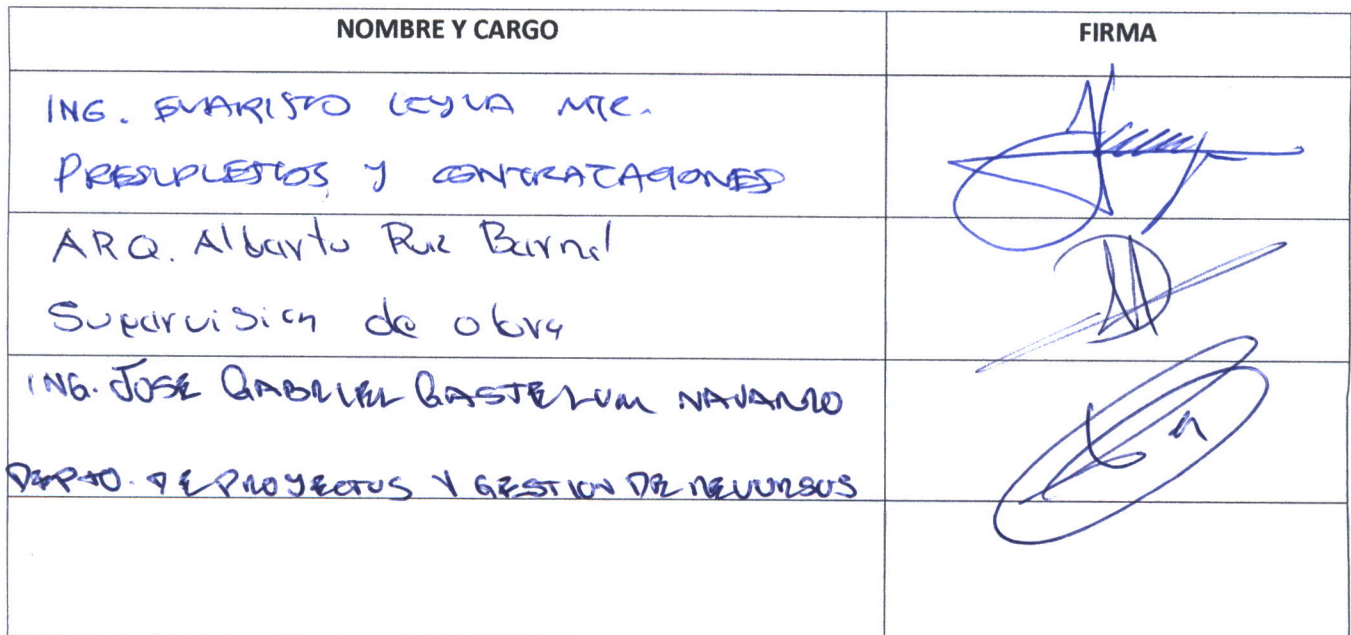 NOMBRE Y CARGO
FIRMA
ING. EVARISTO LEYVA
PRESUPUESTOS Y CONTRATACIONES
ARQ. Alberto Ruz Bernal
Supervision de obra
ING. JOSE GABRIEL GASTELUM NAVARRO
DEPTO. DE PROYECTOS Y GESTION DE RECURSOS